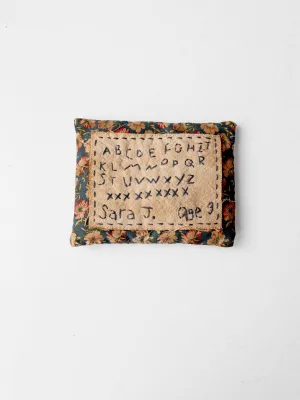 ABCDE FGHIJ
KLMNOPQR
STUVWXYZ
xxxxxxxxxx
Sara J. Age 9